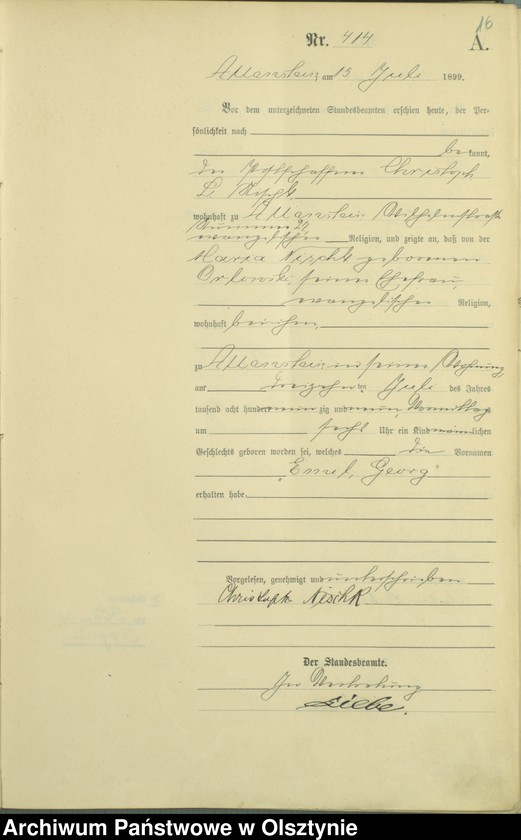 16
Nr. 414
A.
Allenstein, am 13 Juli 1899.
Vor dem unterzeichneten Standesbeamten erschien heute, der Per-
sönlichkeit nach
be kannt,
der Christoph
Nischk
wohnhaft zu Allenstein Wilhelmstraße
Nummer
evangelischer Religion, und zeigte an, daß von der
Maria Nischk geborenen
Orlowski, seiner Ehefrau,
evangelischer Religion,
wohnhaft bei ihm,
zu Allenstein in seiner Wohnung
am dreizehn ten Juli des Jahres
tausend acht hundert neun zig und neun, Vormittags
um sechs Uhr ein Kind männlichen
Geschlechts geboren worden sei, welches die Vornamen
Georg"
erhalten habe.
Vorgelesen, genehmigt und unterschrieben
Christoph Nischk
Der Standesbeamte.
In Vertretung
Liebe.
Archiwum Państwowe w Olsztynie